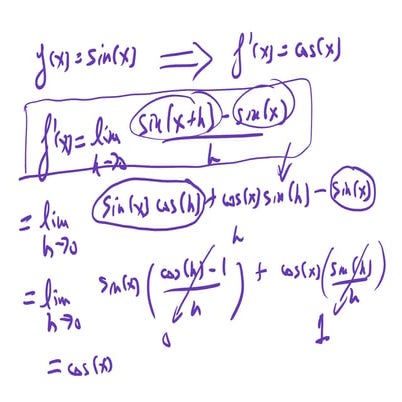 f(x) = sin(x) ⟹ f'(x) = cos(x)
f'(x) = lim h→0 (sin(x+h) - sin(x)) / h
= lim h→0 (sin(x) cos(h) + cos(x) sin(h) - sin(x)) / h
= lim h→0 sin(x) ((cos(h) - 1) / h) + cos(x) (sin(h) / h)
0 1
= cos(x)